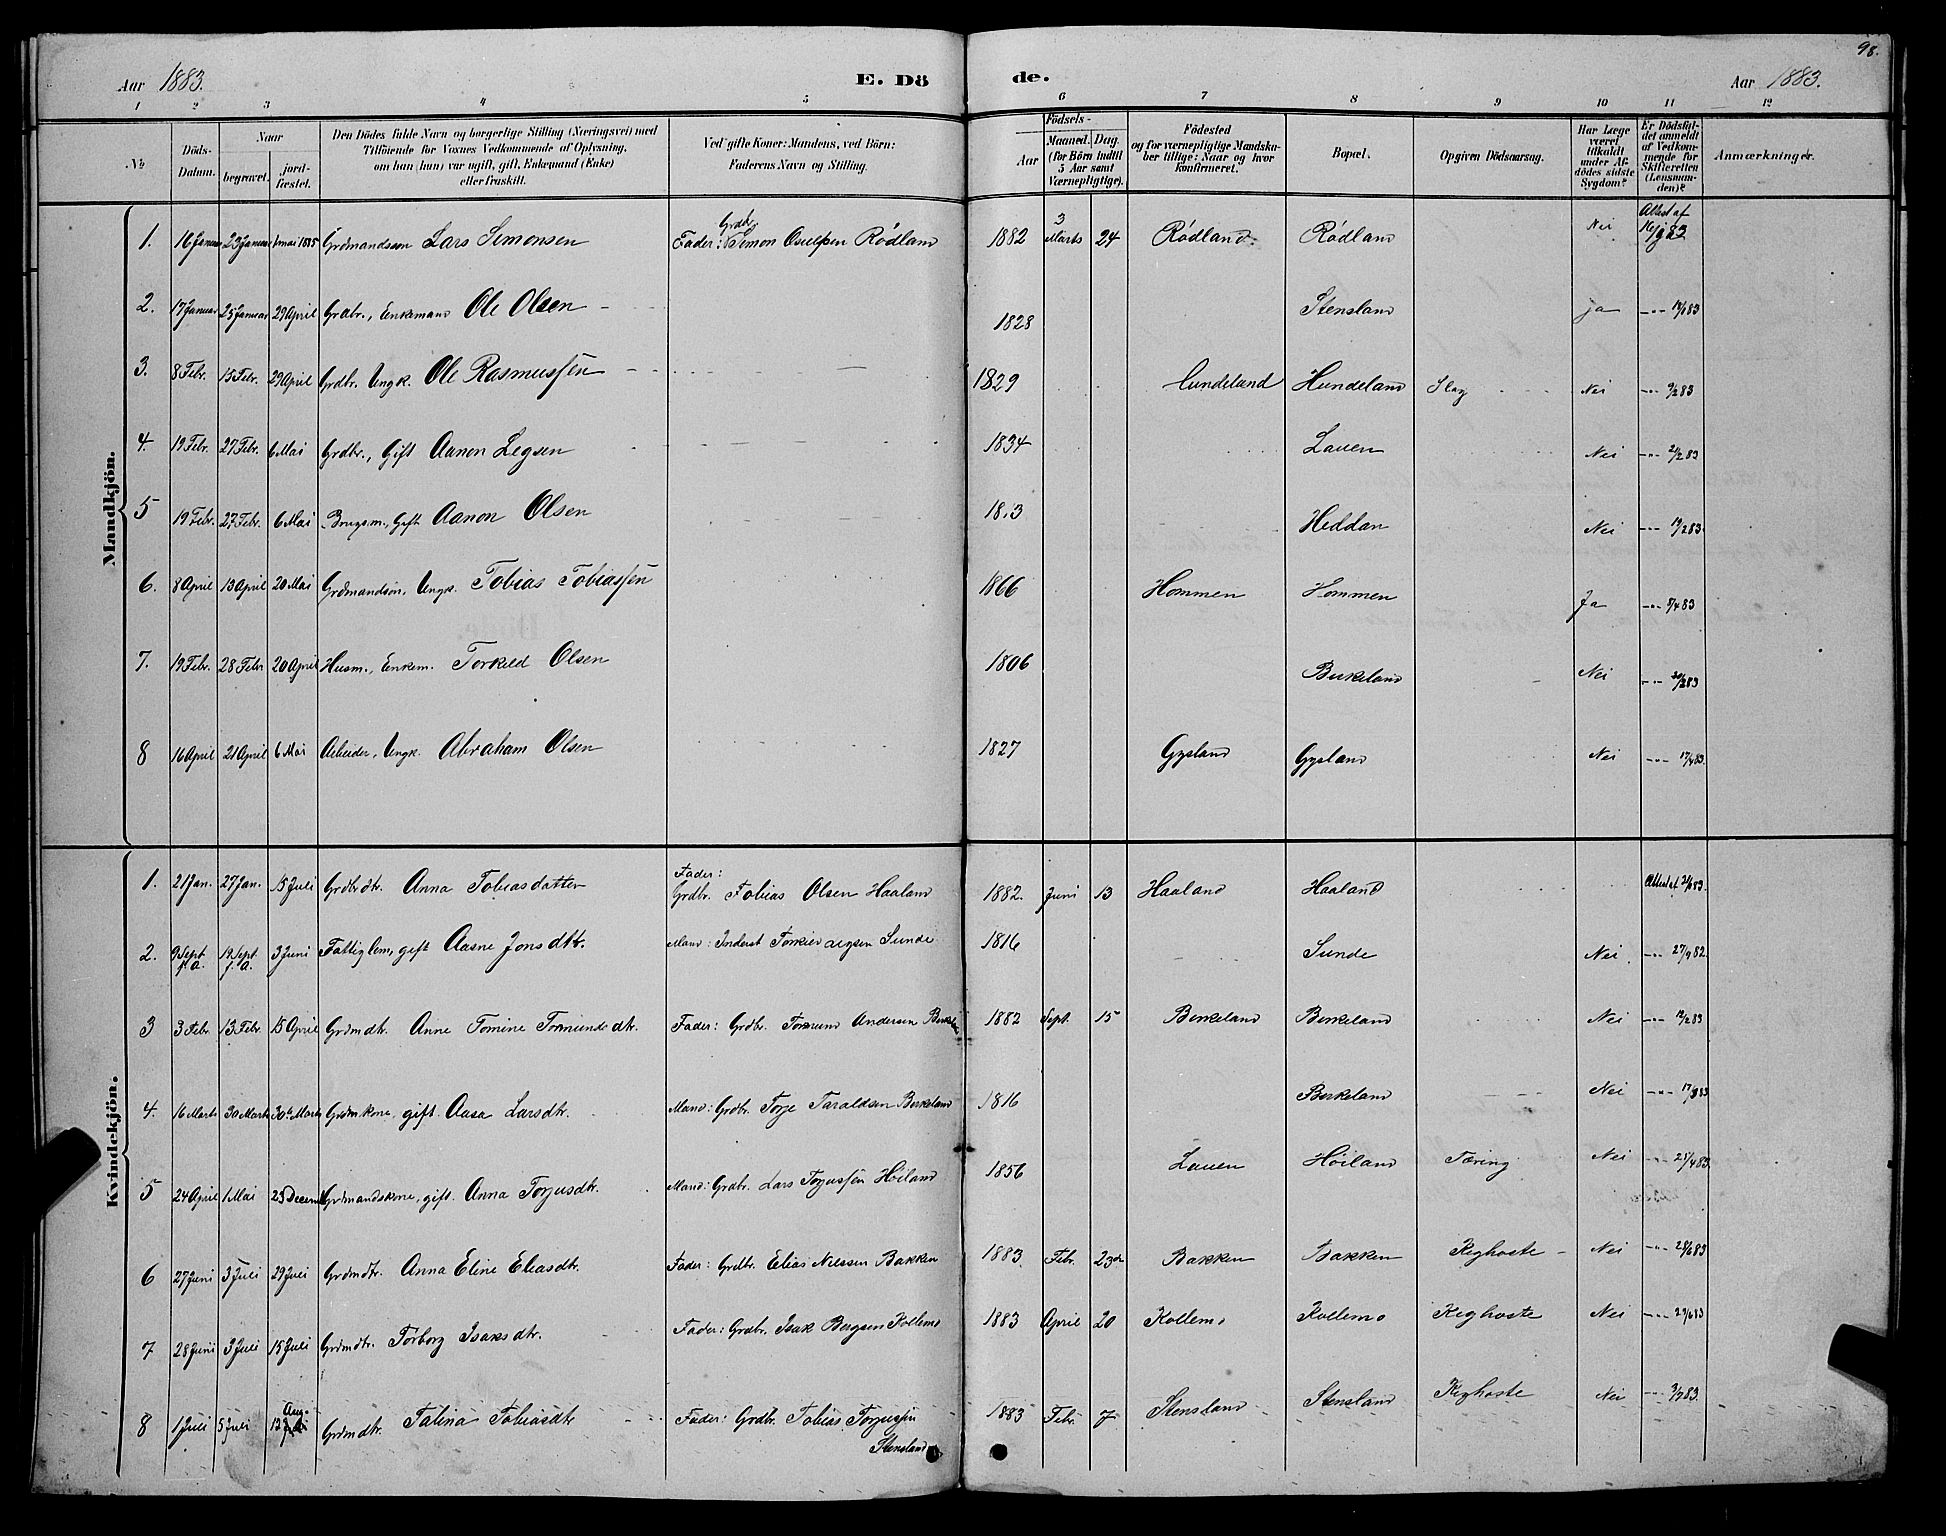 98.
Aar 1883. E. Dö de. Aar 1883.
1 2 3 4 5 6 7 8 9 10 11 12
№
Döds-Datum.
Naar
begravet.
jord-fæstet.
Den Dödes fulde Navn og borgerlige Stilling (Næringsvei) med
Tilföiende for Voxnes Vedkommende af Oplysning,
om han (hun) var ugift, gift, Enkemand (Enke)
eller fraskilt.
Ved gifte Koner: Mandens, ved Börn:
Faderens Navn og Stilling.
Födsels-
Aar
Maaned. Dag.
(for Börn indtil
5 Aar samt
Værnepligtige).
Födested
og for værnepligtige Mandska-
ber tillige: Naar og hvor
konfirmeret.
Bopæl.
Opgiven Dödsaarsag.
Har Læge
været
tilkaldt
under Af-
dödes sidste
Sygdom?
Er Dödsfal-
det anmeldt
af Vedkom-
mende for
Skifteretten
(Lensman-
den)?
Anmærkninger.
Mandkjön.
1. 16 Januar 23 Januar 1 mai 1885 Grdmandssøn Lars Simonsen Fader: Grdbr. Simon Osulfsen Rødland 1882 3 Marts 24 Rødland Rødland Nei Attest af 16/1 83
2. 17 Januar 25 Januar 29 April Grdbr., Enkemand Ole Olsen 1828 Stensland ja -"- 19/1 83
3. 8 Febr. 15 Febr. 29 April Grdbr. Ungk. Ole Rasmussen 1829 Hundeland Hundeland Slag Nei -"- 9/2 83
4. 19 Febr. 27 Febr. 6 Mai Grdbr., Gift Aanon Legsen 1834 Lauen Nei -"- 2/2 83
5 19 Febr. 27 Febr. 6 Mai Brugsm., Gift Aanon Olsen Heddan Nei -"- 19/2 83
6. 8 April 13 April 20 Mai Grdmandssøn, Ungk. Tobias Tobiassen 1866 Hommen Hommen Ja -"- 9/4 83
7. 19 Febr. 28 Febr 20 April Husm., Enkem. Torkild Olsen 1806 Birkeland Nei -"- 20/2 83
8 16 April 21 April 6 Mai Arbeider, Ungk. Abraham Olsen 1827 Gysland Gysland Nei -"- 17/4 83
Kvindekjön.
1. 21 Jan. 27 Jan. 15 Juli Grdbrdtr. Anna Tobiasdatter Fader: Grdbr. Tobias Olsen Haaland 1882. Juni 13 Haaland Haaland Attest af 83
2. 9 Sept. f. A. 19 Sept. f. A. 3 Juni Fattiglem, gift Aasne Jonsdtr. Mand: Inderst Sunde 1816 Sunde Nei. -"- 27/9 82
3 3 Febr. 13 Febr. 15 April Grdmdtr. Anne Tomine Tormundsdtr. Fader: Grdbr. Tormund Andersen Birkeland 1882 Sept. 15 Birkeland Birkeland Nei -"- 12/2 83
4. 16 Marts 30 Marts 30te Marts Grdmkone, gift. Aasa Larsdtr. Mand: Grdbr. Torje Taraldsen Birkeland 1816 Birkeland Nei -"- 17/3 83
5 24 April 1 Mai 23 Decembr Grdmandskone, gift. Anna Torjusdtr. Mand: Grdbr. Lars Torjussen Høiland 1856 Lauen Høiland Tæring Nei -"- 25/4 83
6 27 Juni 3 Juli 29 Juli Grdmdtr. Anna Eline Eliasdtr. Fader: Grdbr. Elias Nilssen Bakken 1883 Febr. 23de Bakken Bakken Kighoste Nei -"- 28/6 83
7 28 Juni 3 Juli 15 Juli Grdmdtr. Torborg Isaksdtr. Fader: Grdbr. Isak Bergsen Kollemo 1883 April 20 Kollemo Kollemo Kighoste Nei -"- 29/6 83
8 1 Juli 5 Juli 12 Aug. Grdmdtr. Talina Tobiasdtr Fader: Grdbr. Tobias Torjussen Stensland 1883 Febr. 7 Stensland Stensland Kighoste Nei -"- 3/7 83.